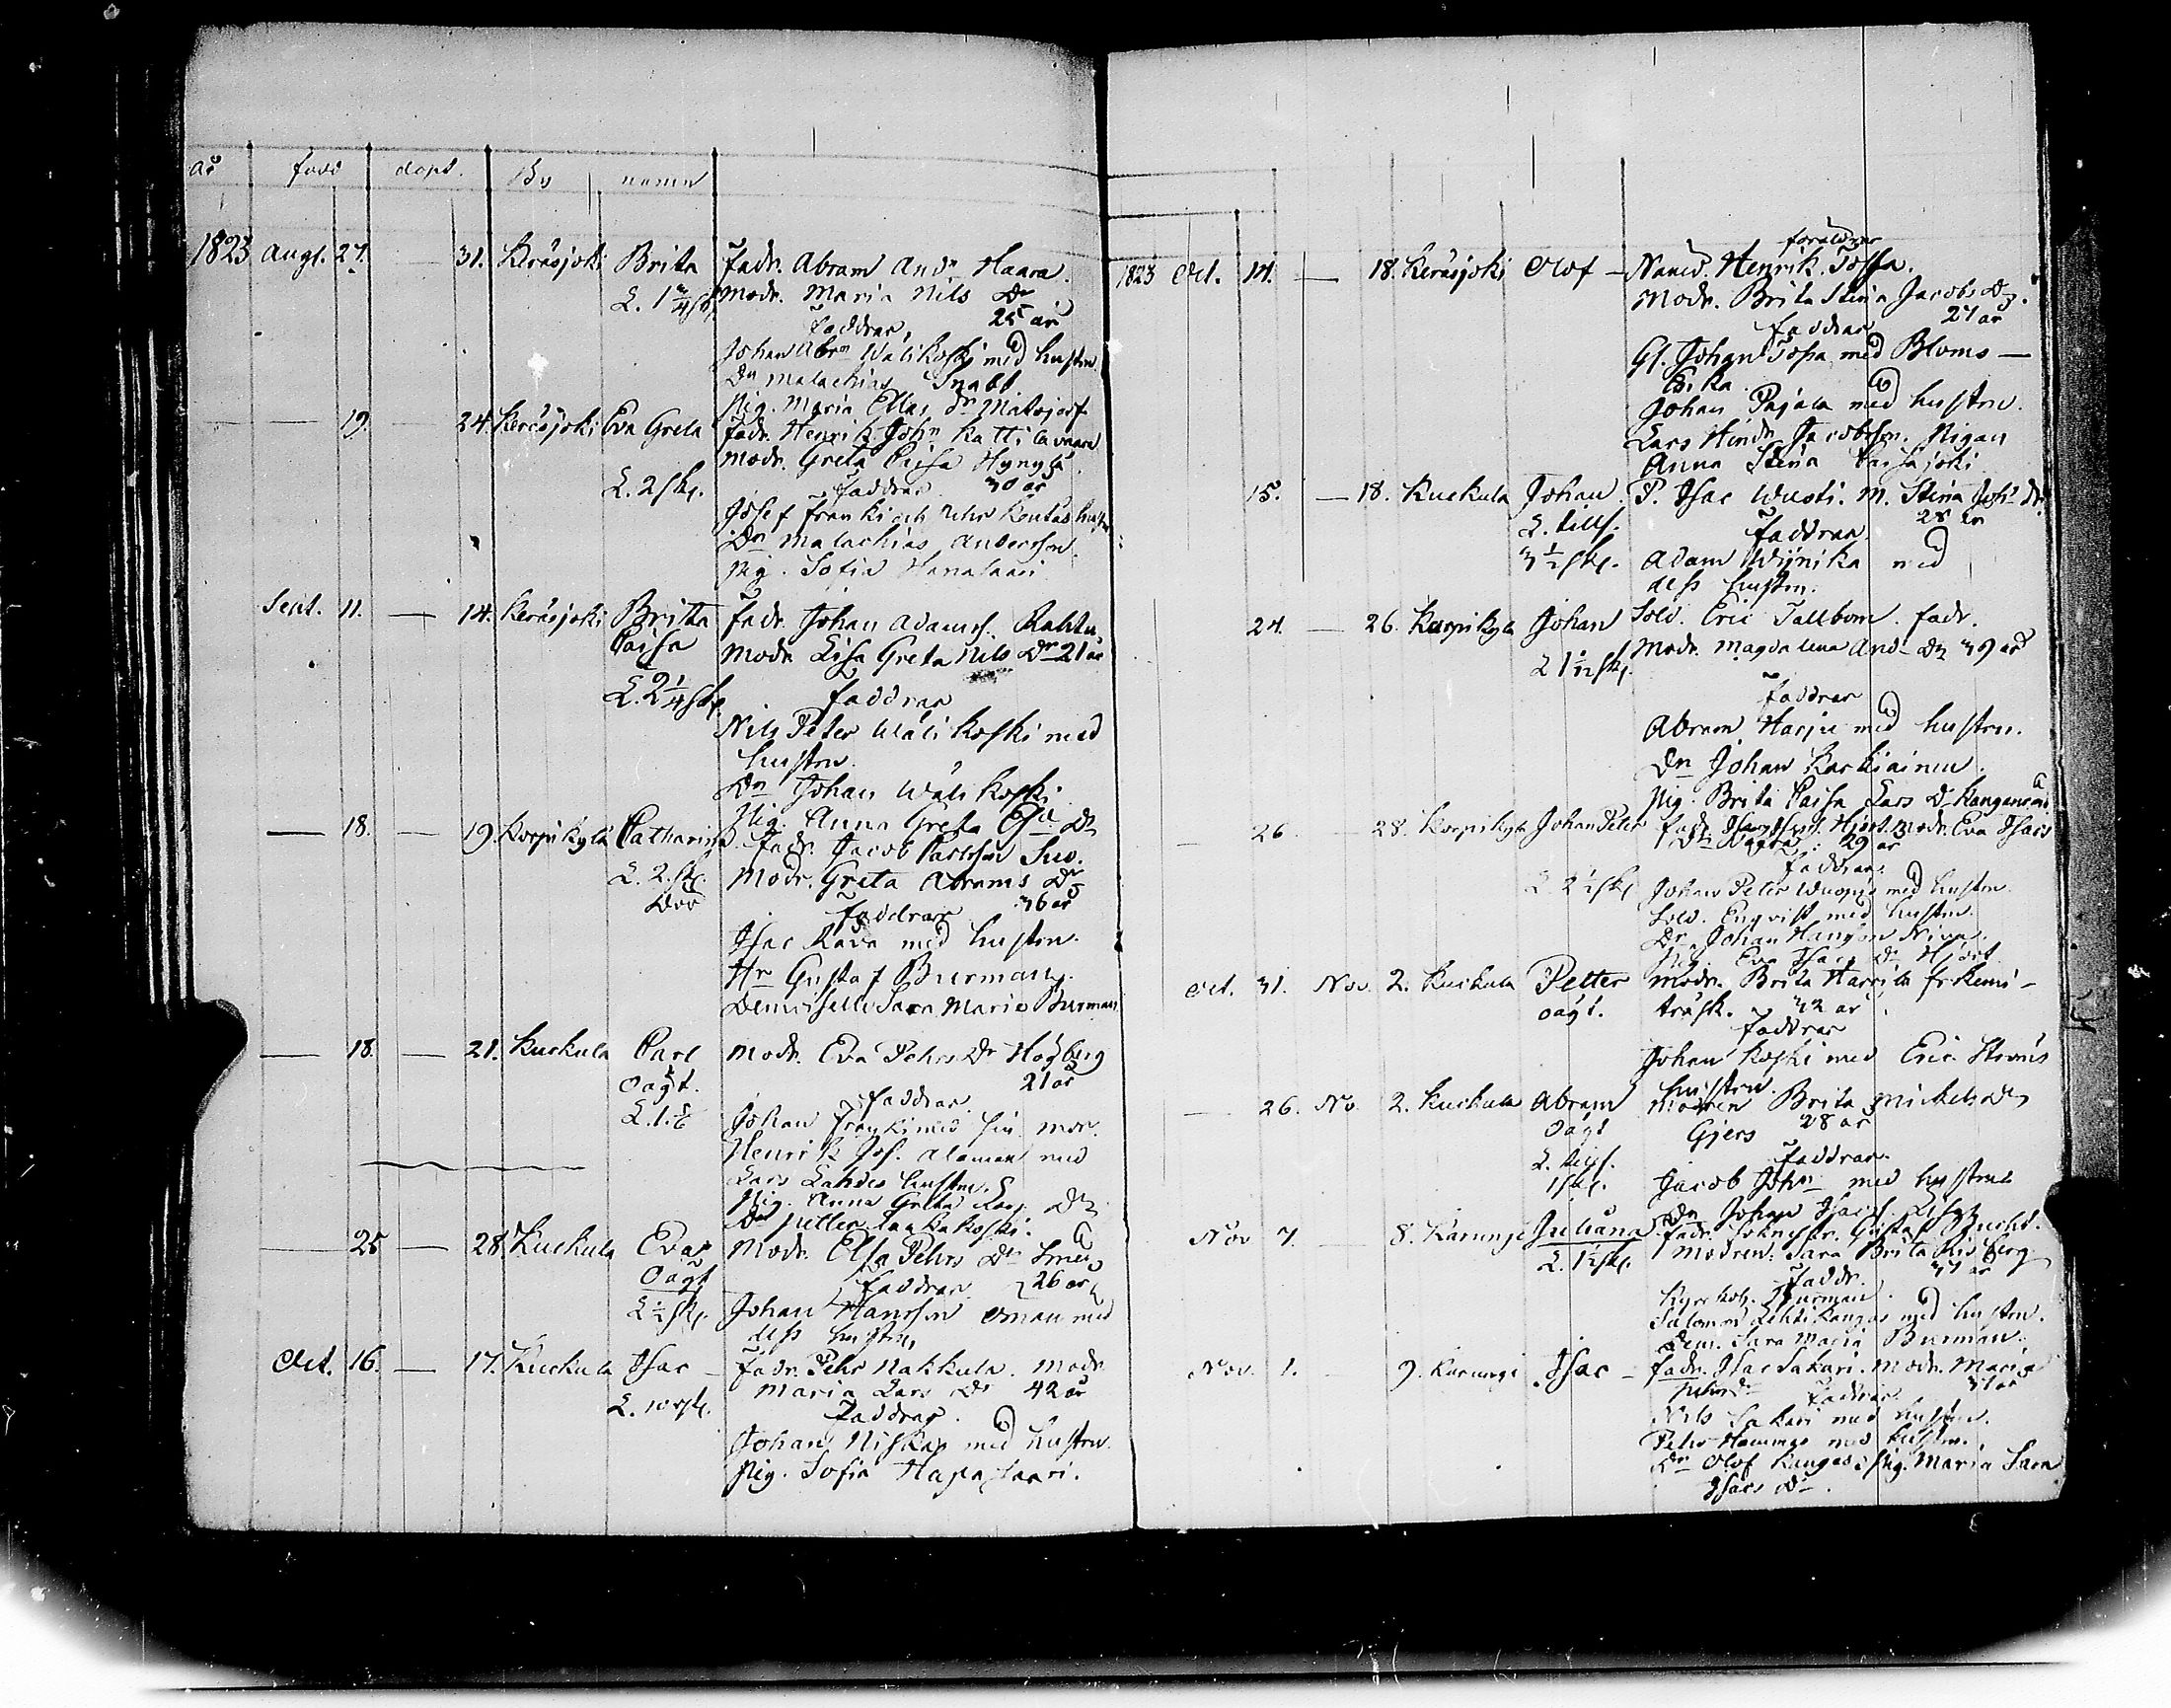 år född döpt. By namn
1823 Augt. 27. — 31. Keräsjoki Brita Fadr. Abram Andn Haara.
L. 1 3/4 sk. Modr. Maria Nils Dr
25 år
Faddrar,
Johan Abrm Wälikoski med hustru.
Dn Malachias Snabb
Pig. Maria Ellas dr
— 19. — 24. Keräsjoki Eva Greta Fadr. Henrik John Kattilavaara
Modr. Greta Caisa
L. 2 sk. Faddrar. 30 år
Josef Franki och Pehr hustru
Dn Malachias Andersson.
Pig. Sofia
Sept. 11. — 14. Keräsjoki Britta Fadr. Johan Adams. Rahtu,
Caisa Modr. Lisa Greta Nils Dr 21 år
L. 2 1/4 sk. Faddrar
Nils Peter Wälikoski med
hustru.
Dn Johan Wälikoski
Pig. Anna Greta Dr
— 18. — 19. Korpikylä Catharina Fadr. Jacob Carlsson Suo.
L. 2. sk. Modr. Greta Abrams Dr
Död Faddrar 36 år
Isac Rava med hustru.
Hr Gustaf Burman.
Demoiselle Sara Maria Burman
— 18. — 21. Kuckula Carl Modr. Eva Pehrs Dr Högberg
Oägt. 21 år
L. 1. Faddrar.
Johan Franki med sin mor.
Henrik Jos. Alaman med
Lars Lahdes hustru.
Pig. Anna Greta Dr
Dn Petter
— 25 — 28. Kuckula Eva Modr. Elsa Pehrs Dr
Oägt Faddrar 26 år
L. ½ sk. Johan Hansson Oman med
dess hustru,
Oct. 16. — 17. Kuckula Isac — Fadr. Pehr Nakkula. Modr
Maria Lars Dr 42 år
L. Faddrar.
Johan Niska med hustru
Pig. Sofia
föräldrar
1823 Oct. 14. — 18. Keräsjoki Olof — Nämd. Henrik Tossa.
Modr. Brita Stina Jacobs Dr.
27 år
Faddrar
Gl. Johan Tossa med Bloms —
Johan Pajala med hustru.
Lars Hindr. Jacobsson. Pigan
Anna Stina
15. — 18. Kuckula Johan P. Isac Wusti. M. Stina Johs Dr
L. tills. Faddrar 28 år
3 ½ sk. Adam Wijnika med
dess hustru.
24. — 26. Karpikylä Johan Sold. Eric Tallbom. Fadr.
L 1 ½ sk. Modr. Magdalena And Dr 39 år
Faddrar
Abram Harju med hustru.
Dn Johan Karkiainen.
Pig. Brita Caisa Lars Dr
— 26 — 28. Korpikylä Johan Peter Fadr. Hjort. Modr. Eva Isacs
Dr 29 år
Faddrar.
L 2 ½ sk. Johan Peter Wuopio med hustru
Sold. Enqvist med hustru.
Dn Johan Hansson Niva.
Pig. Eva Isacs Dr Hjort
Oct. 31. Nov. 2. Kuckula Petter Modr. Brita Harrila fr Kemi-
oägt. träsk. 32 år
Faddrar
Johan Koski med Eric
hustru.
— 26. No. 2. Kuckula Abram Modren Brita Mickels Dr
Oägt Gjers 28 år
L. tills. Faddrar.
1 sk. Jacob John med hustru
Dn Johan Isacs.
Nov 7. — 8. Karungi Juliana Fadr. Gustaf
L. 1½ sk. Modren. Sara Brita Ridberg
Faddr. 37 år
Burman.
Salomon Lehtikangas med hustru.
Dem. Sara Maria Burman.
Nov. 1. — 9. Karungi Isac — Fadr. Isac Lakari. Modr. Maria
Pehrs Dr Faddrar 37 år
Nils Lakari med hustru.
Pehr Hammas med hustru.
Dn Olof Kangas, Pig. Maria Sara
Isacs Dr.